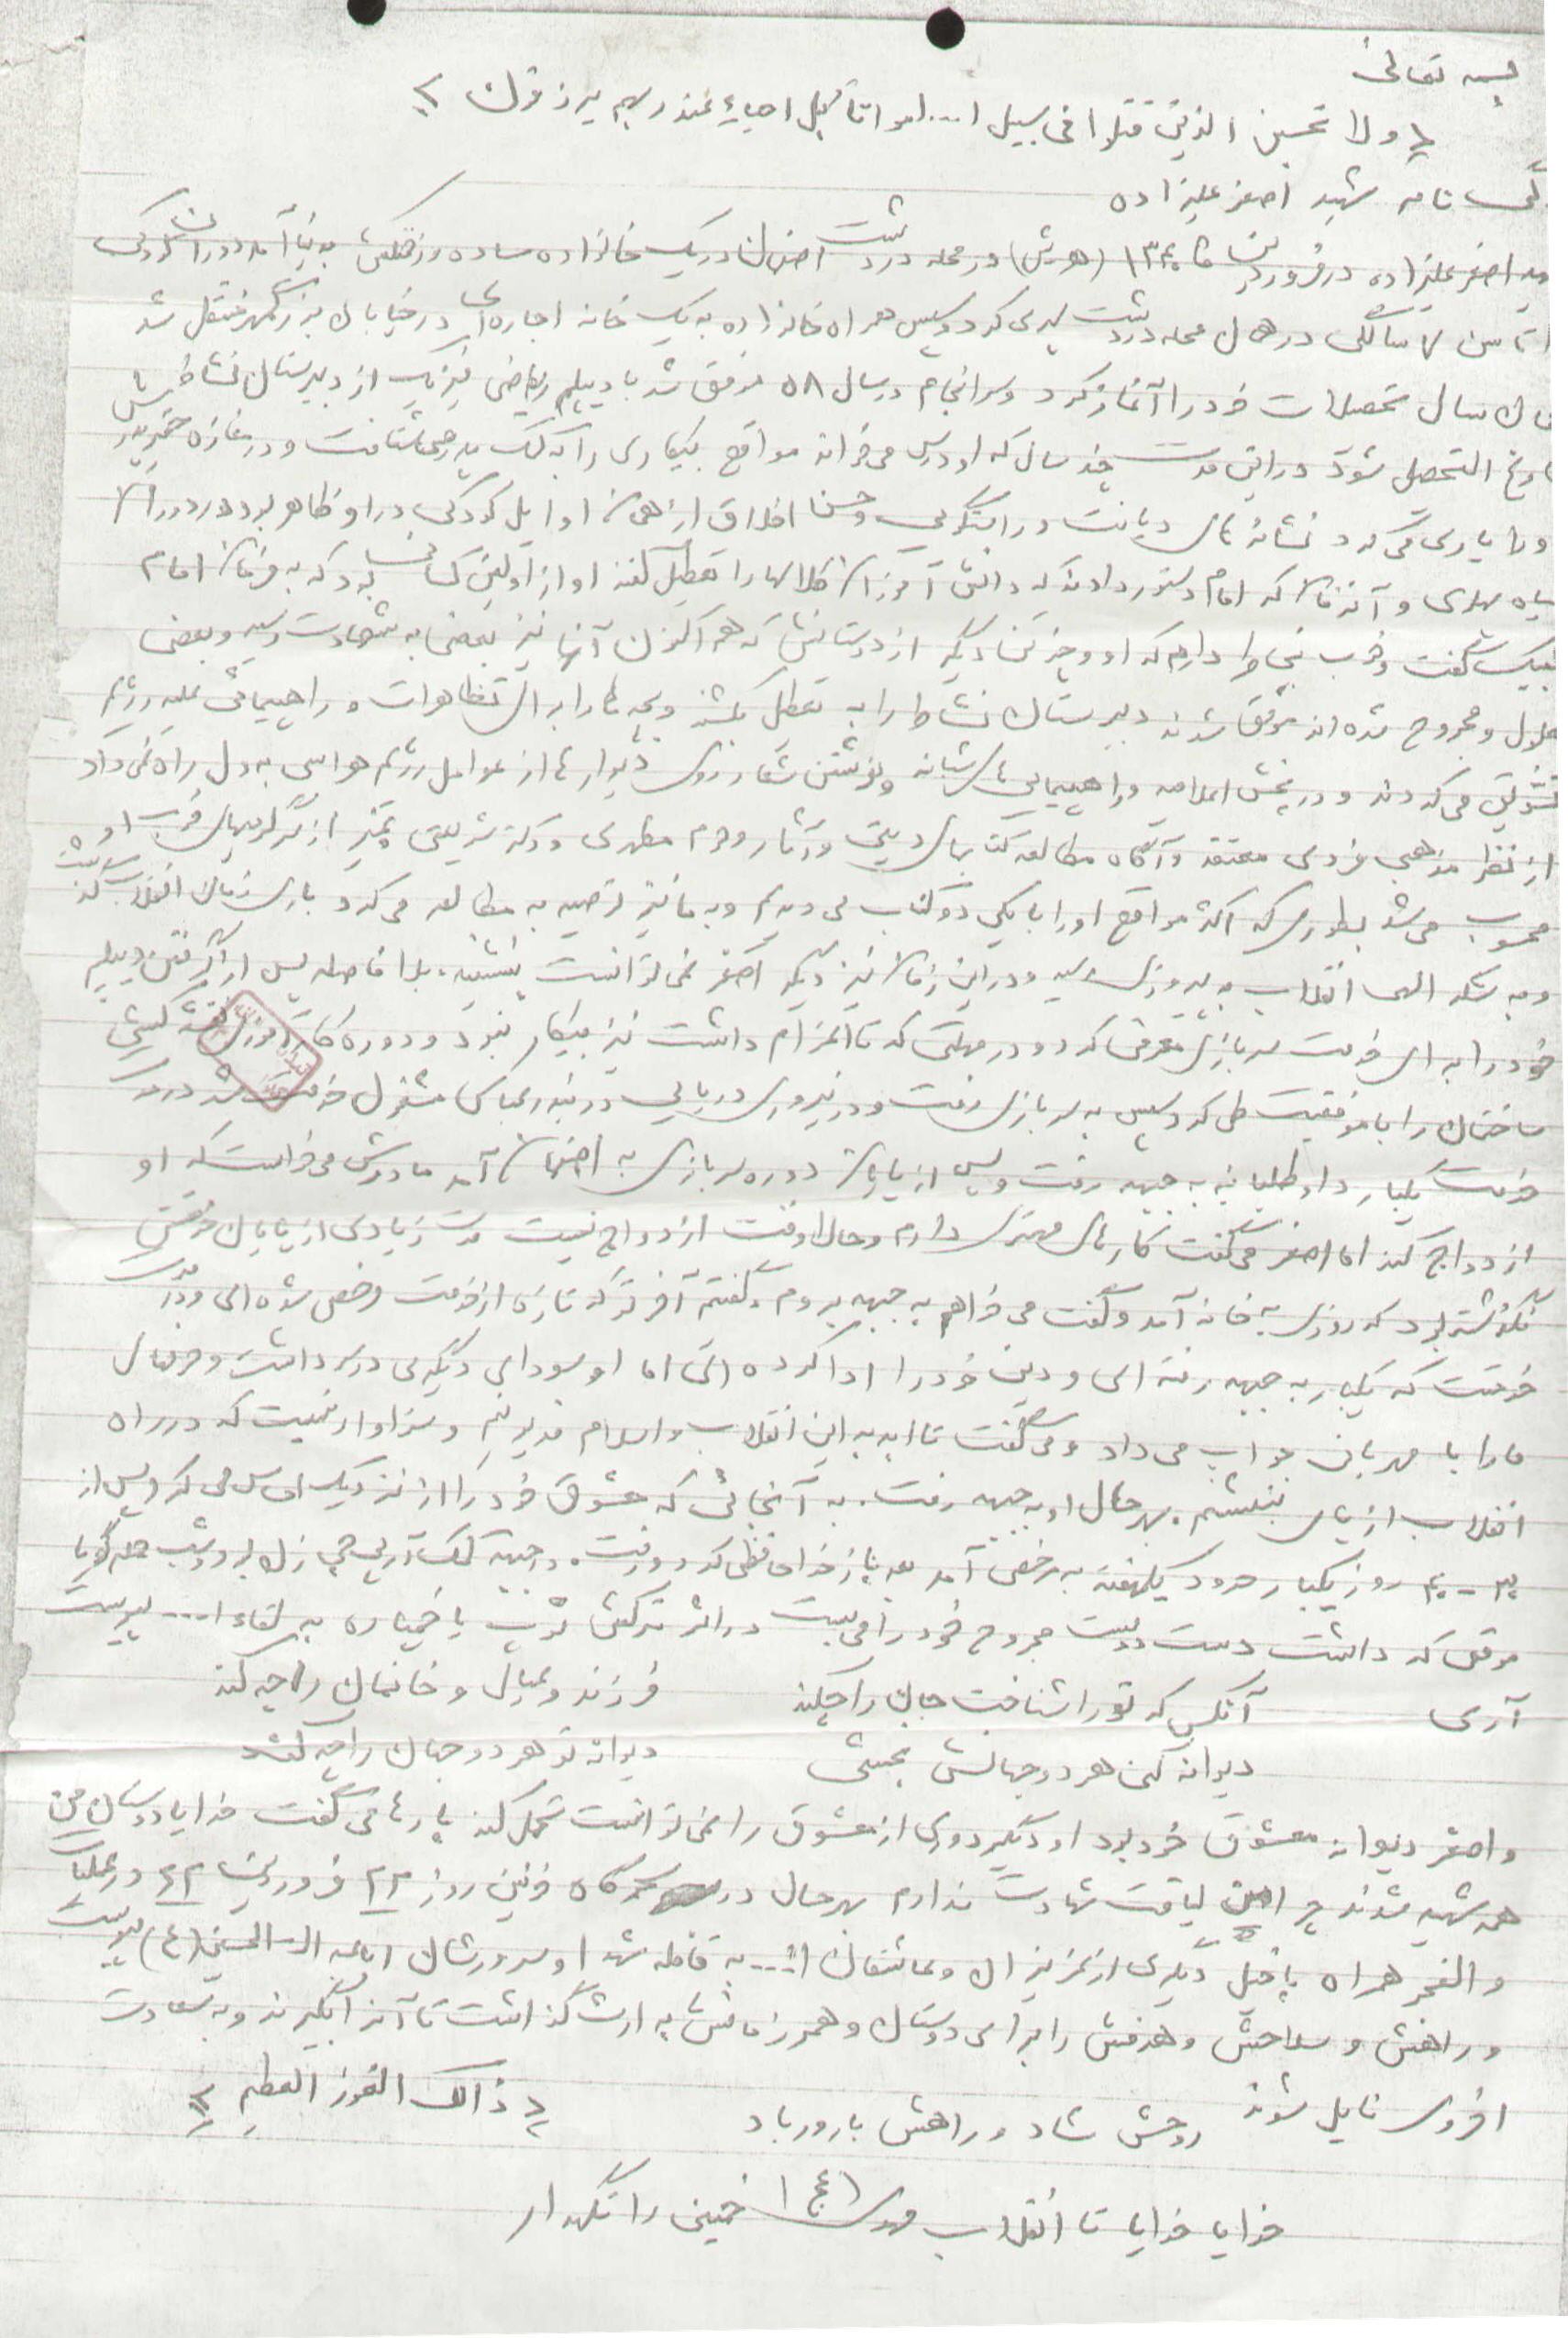 بسمه تعالی
« ولا تحسبن الذین قتلوا فی سبیل ا... امواتا بل احیاء عند ربهم یرزقون »
نامه شهید اصغر علیزاده
اصغر علیزاده در فروردین ماه ۱۳۴۰ (هـ ش) در محله دردشت اصفهان در یک خانواده ساده و زحمتکش به دنیا آمد دوران کودکی
تا سن ۷ سالگی در همان محله دردشت سپری کرد و سپس همراه خانواده به یک خانه اجاره‌ای در خیابان بزرگمهر منتقل شد
سال تحصیلات خود را آغاز کرد و سرانجام در سال ۵۸ موفق شد با دیپلم ریاضی فیزیک از دبیرستان نشاط
فارغ التحصیل شود در این مدت چند سال که او درس می‌خواند مواقع بیکاری را به کمک پدر می‌شتافت و در مغازه پدرش
یاری می‌کرد نشانه‌های دیانت و راستگویی و حسن اخلاق از همان اوایل کودکی در او ظاهر بود در دوران
سیاه پهلوی و آن زمان که امام دستور دادند که دانش آموزان کلاسها را تعطیل کنند او از اولین کسانی بود که به فرمان امام
لبیک گفت و خوب بیاد دارم که او و چند تن دیگر از دوستانش که هم اکنون آنها نیز بعضی به شهادت رسیده و بعضی
معلول و مجروح شده‌اند موفق شدند دبیرستان نشاط را به تعطیل بکشند و بچه‌ها را برای تظاهرات و راهپیمائی علیه رژیم
تشویق می‌کردند و در پخش اعلامیه و راهپیمایی‌های شبانه و نوشتن شعار روی دیوارها از عوامل رژیم هراسی به دل راه نمی‌داد
از نظر مذهبی فردی معتقد و آگاه مطالعه کتابهای دینی و آثار مرحوم مطهری و دکتر شریعتی نیز از سرگرمیهای خوب او
محسوب می‌شد بطوری که اکثر مواقع او را با یکی دو کتاب می‌دیدیم و به ما نیز توصیه به مطالعه می‌کرد باری زمان انقلاب گذشت
و به شکر الهی انقلاب به پیروزی رسید و در این زمان نیز دیگر اصغر نمی‌توانست بنشیند. بلافاصله پس از گرفتن دیپلم
خود را برای خدمت سربازی معرفی کرد و در مهلتی که تا اعزام داشت نیز بیکار نبود و دوره کارآموزی نقشه کشی
ساختمان را با موفقیت طی کرد و سپس به سربازی رفت و در نیروی دریایی در بندرعباس مشغول خدمت شد در مدت
خدمت یکبار داوطلبانه به جبهه رفت و پس از پایان دوره سربازی به اصفهان آمد مادرش می‌خواست که او
ازدواج کند اما اصغر می‌گفت کارهای مهمتری دارم و حالا وقت ازدواج نیست مدت زیادی از پایان خدمتش
نگذشته بود که روزی به خانه آمد و گفت می‌خواهم به جبهه بروم. گفتم آخر تو که تازه از خدمت مرخص شده‌ای و در مدت
خدمت که یکبار به جبهه رفته‌ای و دین خود را ادا کرده‌ای اما او سودای دیگری در سر داشت و هر سال
ما را با مهربانی جواب می‌داد و می‌گفت تا ابد به این انقلاب و اسلام مدیونیم و سزاوار نیست که در راه
انقلاب از پای بنشینم. بهر حال او به جبهه رفت. به آنجائی که معشوق خود را از نزدیک احساس می‌کرد و پس از
۳۰ - ۴۰ روز یکبار حدود یکهفته به مرخصی آمد بعد باز خداحافظی کرد و رفت. در جبهه کمک آرپی جی زن بود و شب حمله گویا
موقعی که داشت دست دوست مجروح خود را می‌بست در اثر ترکش توپ یا خمپاره به لقاء ا... پیوست
آری آنکس که تو را شناخت جان را چکند فرزند و عیال و خانمان را چه کند
دیوانه کنی هر دو جهانش بخشی دیوانه تو هر دو جهان را چه کند
و اصغر دیوانه معشوق خود بود او دیگر دوری از معشوق را نمی‌توانست تحمل کند بارها می‌گفت خدایا دوستان من
همه شهید شدند چرا من لیاقت شهادت ندارم بهر حال در سحرگاه خونین روز ۲۲ فروردین ۶۲ در عملیات
والفجر همراه با خیل دیگری از عزیزان و عاشقان ا... به قافله شهدا و سرورشان اباعبدالله الحسین (ع) پیوست
و راهش و سلاحش و هدفش را برای دوستان و همرزمانش به ارث گذاشت تا آنرا بگیرند و به سعادت
اخروی نایل شوند روحش شاد و راهش بارور باد « ذالک الفوز العظیم »
خدایا خدایا تا انقلاب مهدی (عج) خمینی را نگهدار